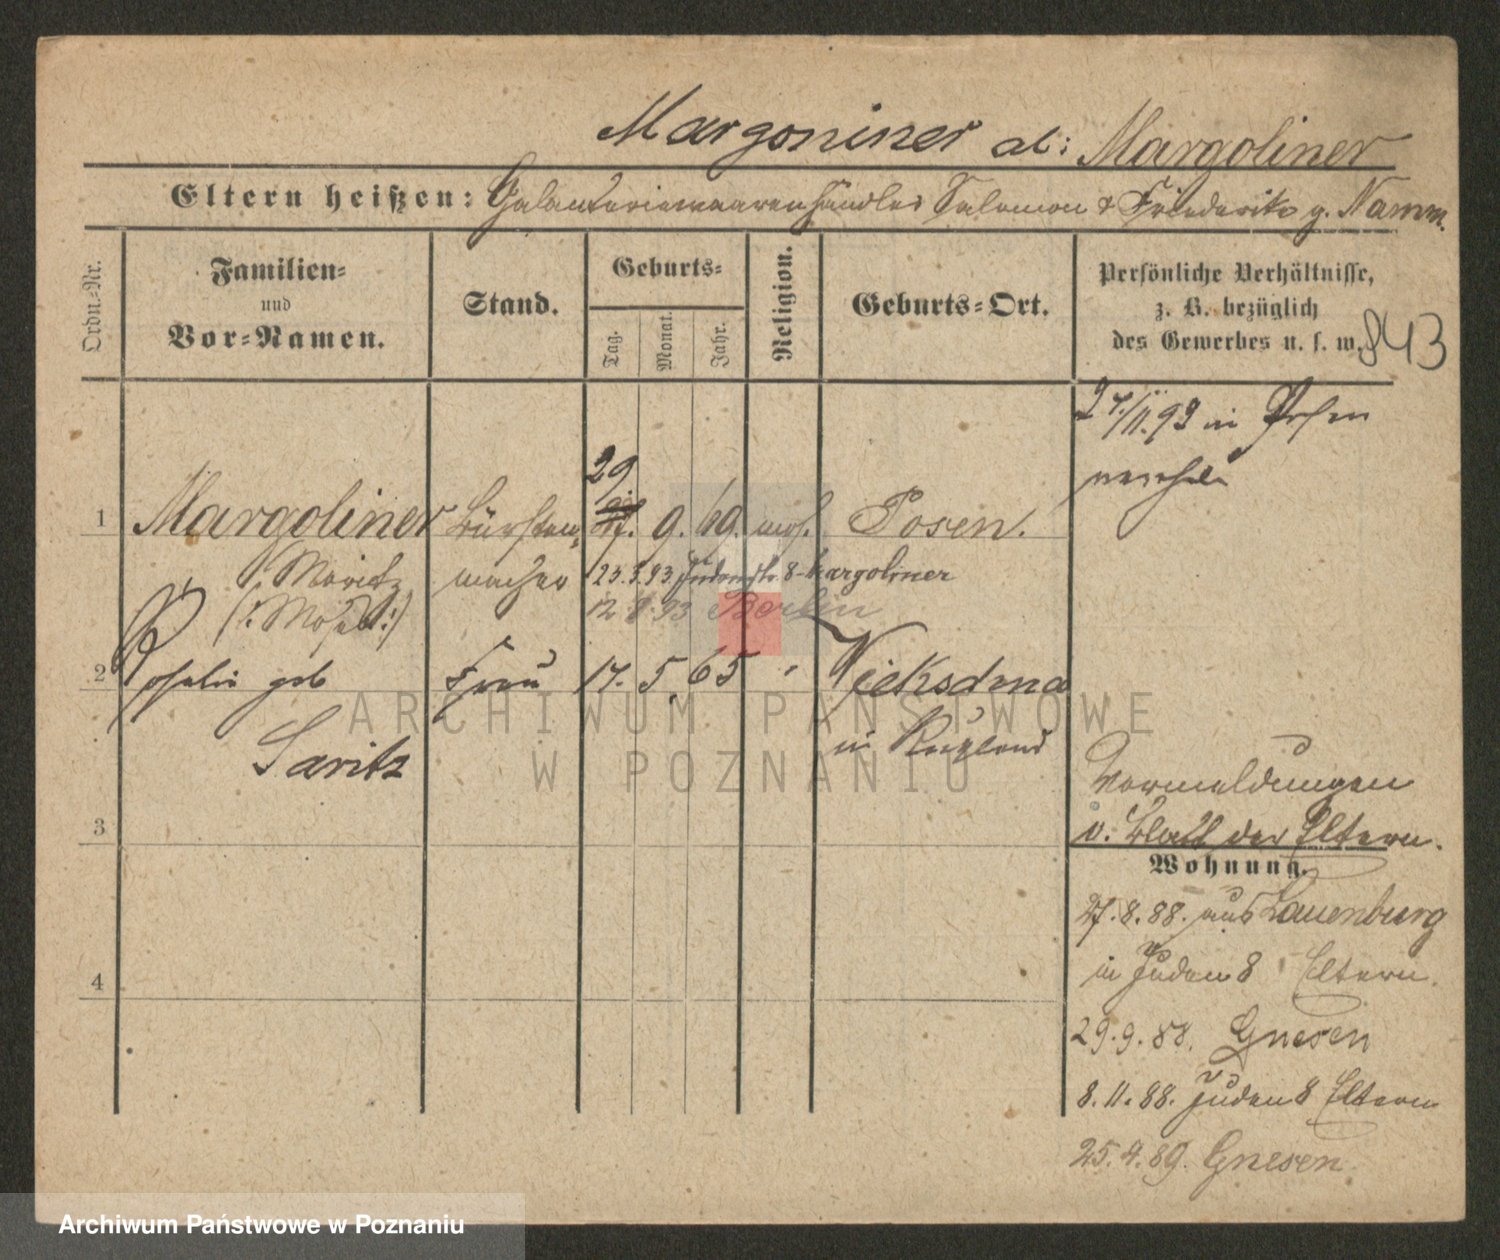 Margoniner al: Margoliner
Eltern heißen: Galanteriewaarenhändler Salomon & Friederike g. Namm.
Ordn.-Nr.
Familien-
und
Vor-Namen.
Stand.
Geburts-
Tag.
Monat.
Jahr.
Religion.
Geburts-Ort.
Persönliche Verhältnisse,
z. B. bezüglich
des Gewerbes u. s. w.
843
27/11.92 in Posen
1 Margoliner Bürsten- 29. 9. 69. mos. Posen.
Moritz macher
23.3.93 Judenstr. 8 Margoliner
12 8 93 Berlin
2 geb Frau 17. 5. 65
in Rußland
Saritz
Vormeldungen
v. Blatt der Eltern.
3
Wohnung.
27.8.88. aus Lauenburg
in Juden 8 Eltern.
4
29.9.88. Gnesen
8.11.88. Juden 8 Eltern
25.4.89. Gnesen.
ARCHIWUM PAŃSTWOWE
W POZNANIU
Archiwum Państwowe w Poznaniu